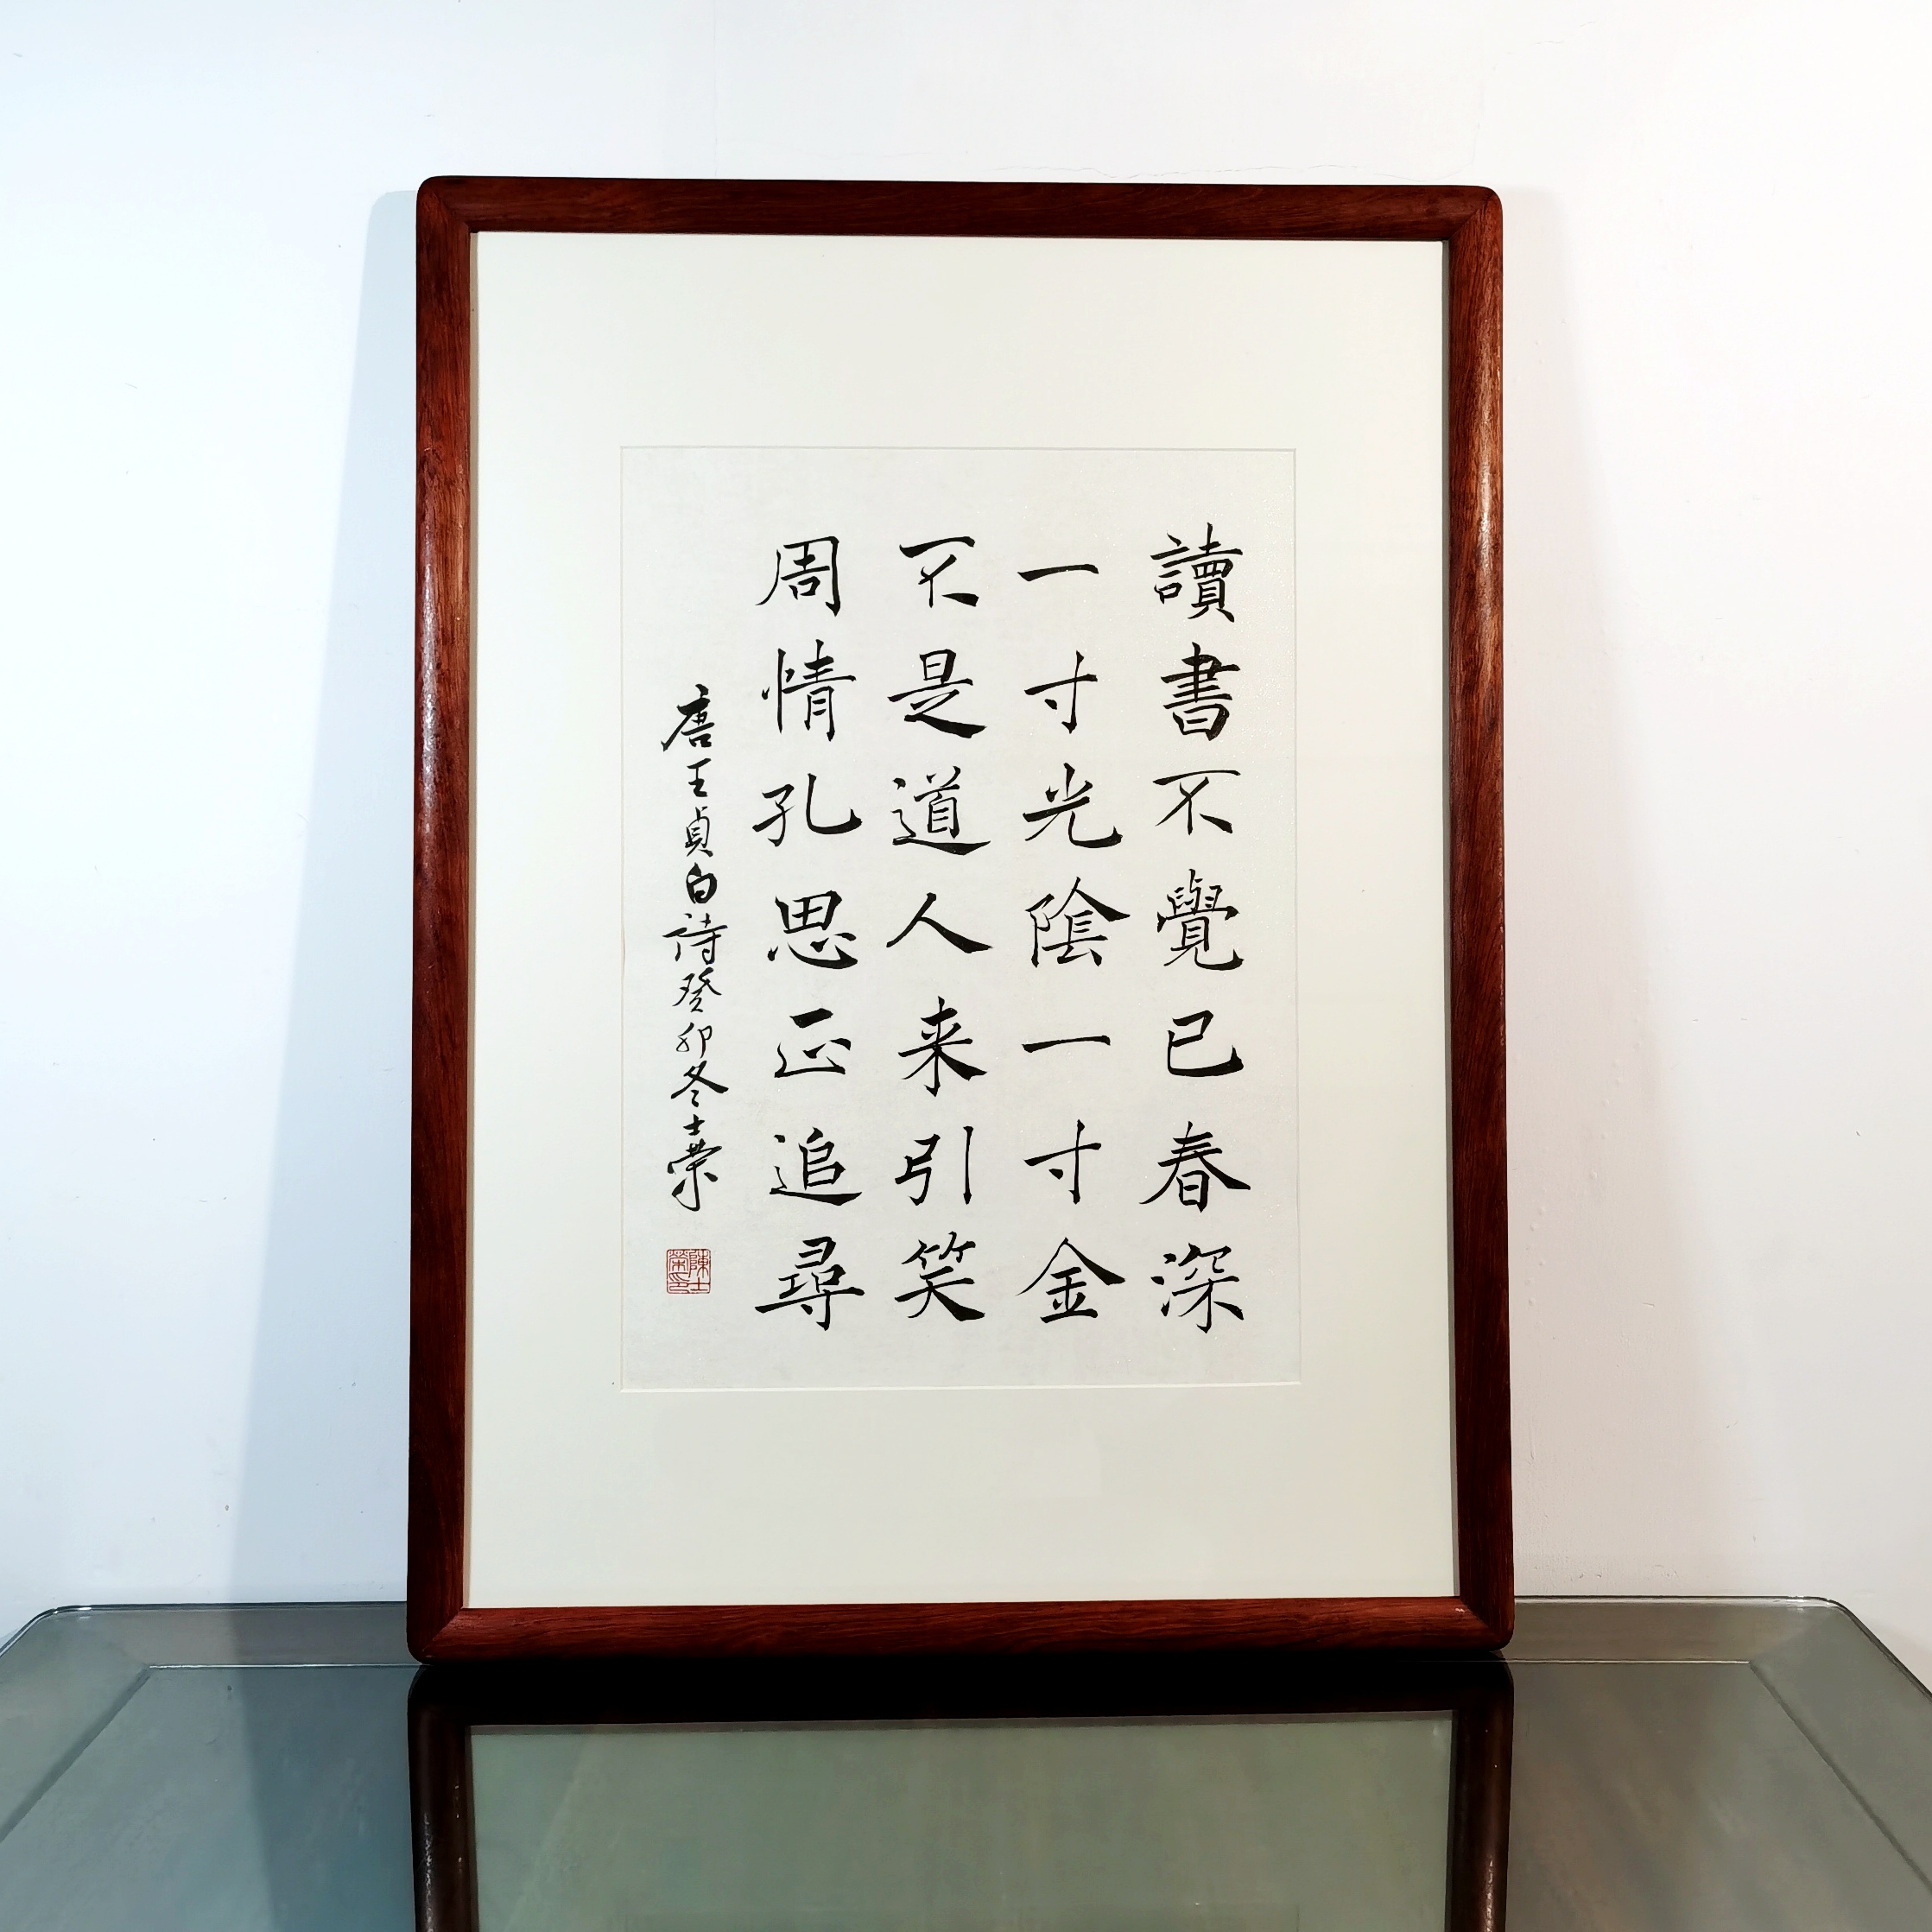 讀書不覺已春深
一寸光陰一寸金
不是道人来引笑
周情孔思正追尋
唐王貞白詩癸卯冬士榮
陳士榮印